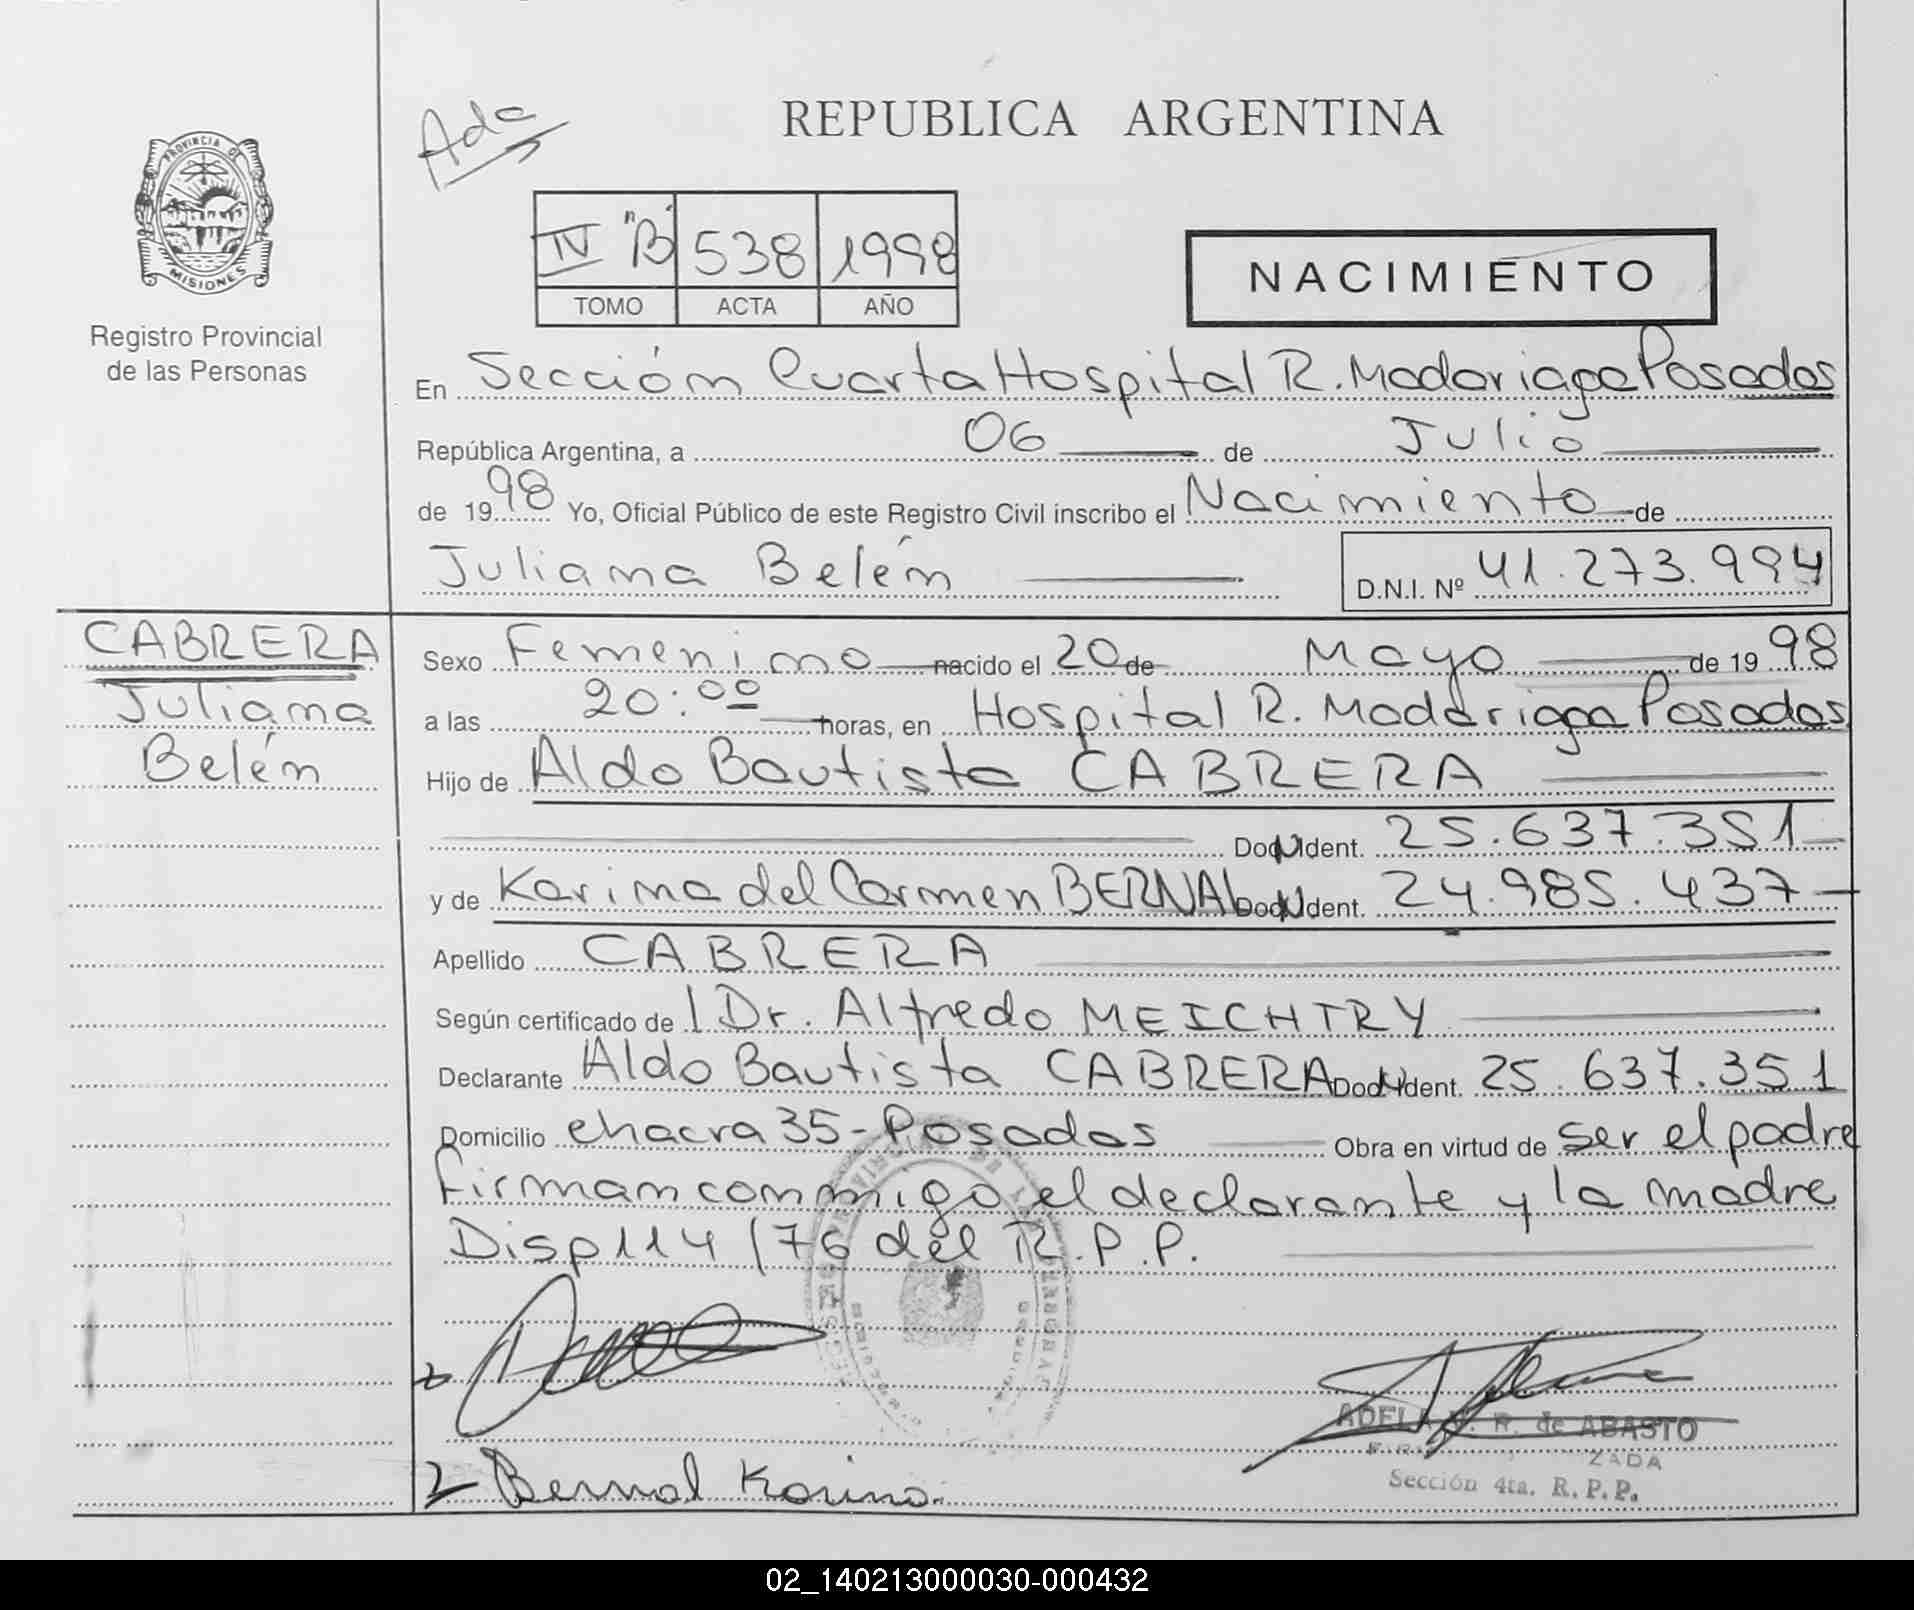 Ada
REPUBLICA ARGENTINA
PROVINCIA DE
MISIONES
Registro Provincial
de las Personas
IV "B" 538 1998
TOMO ACTA AÑO
NACIMIENTO
En Sección Cuarta Hospital R. Madariaga Posadas
República Argentina, a 06 de Julio
de 1998 Yo, Oficial Público de este Registro Civil inscribo el Nacimiento de
Juliana Belén D.N.I. Nº 41.273.994
CABRERA
Juliana
Belén
Sexo Femenino nacido el 20 de Mayo de 1998
a las 20:00 horas, en Hospital R. Madariaga Posadas
Hijo de Aldo Bautista CABRERA
Doc N Ident. 25.637.351
y de Karina del Carmen BERNAL Doc N Ident. 24.985.437
Apellido CABRERA
Según certificado de l Dr. Alfredo MEICHTRY
Declarante Aldo Bautista CABRERA Doc N Ident. 25.637.351
Domicilio chacra 35 - Posadas Obra en virtud de ser el padre
firman conmigo el declarante y la madre
Disp 114/76 del R.P.P.
ADELA R. de ABASTO
Sección 4ta. R.P.P.
Bernal Karina.
02_140213000030-000432